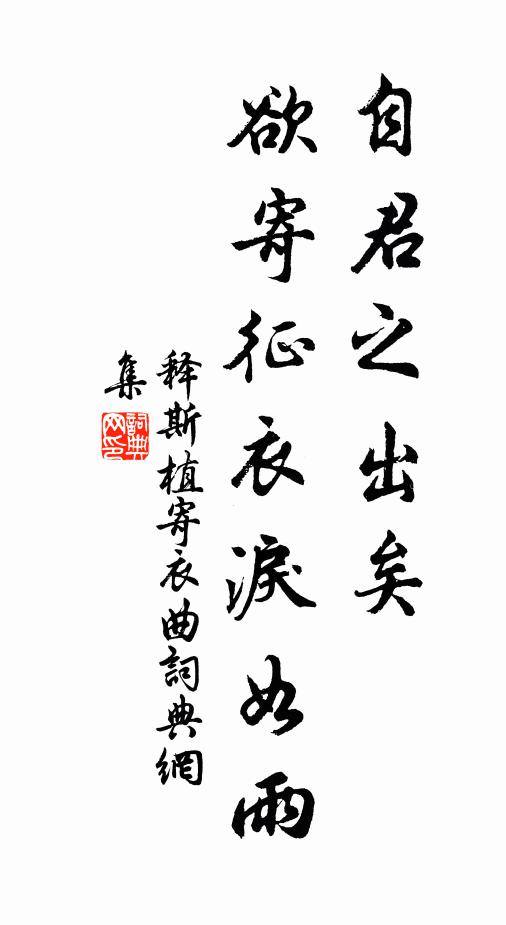 自君之出矣
欲寄征衣淚如雨
释斯植寄衣曲詞典網
集
詞典网印